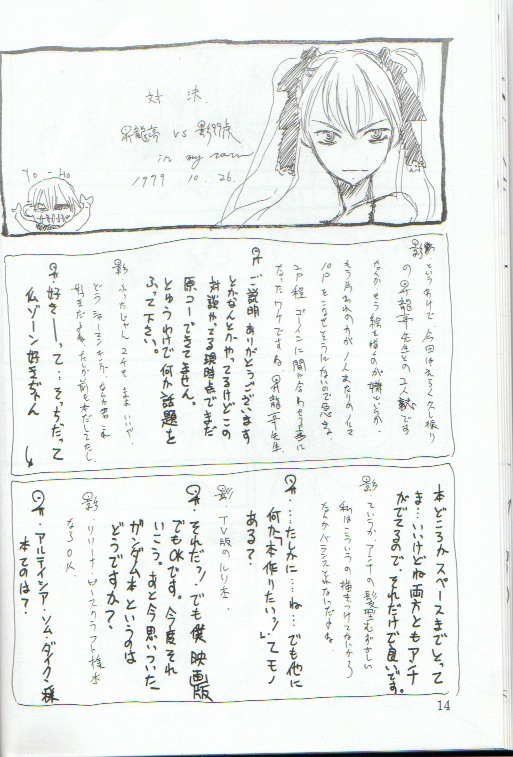 対決
昇龍亭 vs 影99虎
in my room
1999 10. 26.
Yo-Ho
影 というわけで、今回はえらく久し振り
の昇龍亭先生との2人
なんか、もう絵を描くのが嫌というか
もう
10Pをこなせそうにないので急きょ
2P程
なったワケですね 昇龍亭先生
昇 ご説明ありがとうございます
とかなんとかやってるけどこの
対談やってる現時点でまだ
原コーできてません。
とゆうわけで何か話題を
ふって下さい。
影 ふったじゃん
どうシャーマンキング
好きだよね たしか前も本だしてたし
昇 好きーって…そっちだって
仏ゾーン好きぢゃん
本どころかスペースまでとって
ま…いいけどね両方ともアンチ
がでてるので、それだけで良いです。
影 ていうかアンナの髪型むずかしい
私はこういうの描きつけてないから
なんかバランスとれないんだよね
昇 ……たしかに……ね…でも他に
何か「本作りたいッ!」てモノ
ある?
影 TV版のルリ本。
昇・それだッ!でも僕、映画版
でもOKです。今度それ
いこう。あと今思いついた
ガンダム本というのは
どうですか?
影・リリーナ・ピースクラフト様本
ならOK.
昇・アルテイシア・ソム・ダイクン様
本てのは?
14